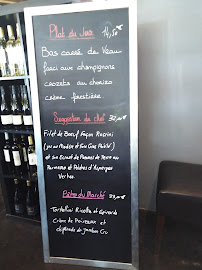 Plat du Jour 14,50€
Bas carré de Veau
farci aux champignons
crozets au chorizo
crème forestière
Suggestion du chef 32,00€
Filet de Boeuf Façon Rossini
(jus au Madère et Foie Gras Poêlé)
et son Ecrasé de Pommes de Terre au
Parmesan et Pointes d'Asperges
Vertes
Pâtes du Marché
Tortellini Ricotta et Epinards
Crème de Poireaux et
chiffonade de jambon Cru